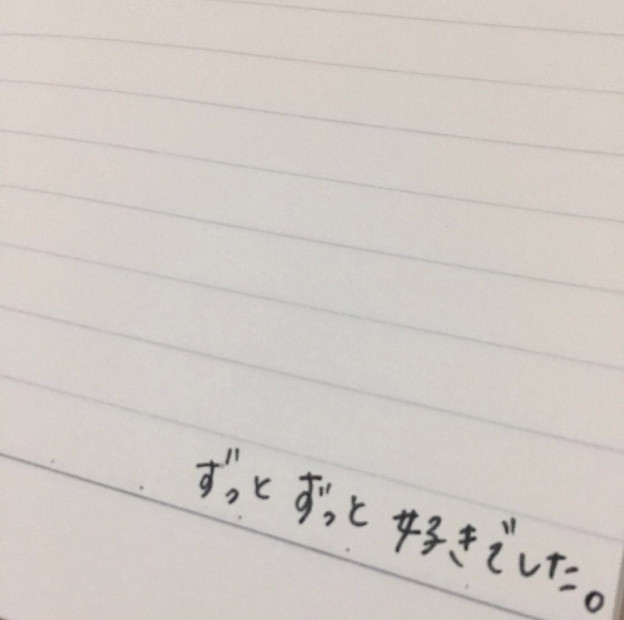 ずっと ずっと 好きでした。